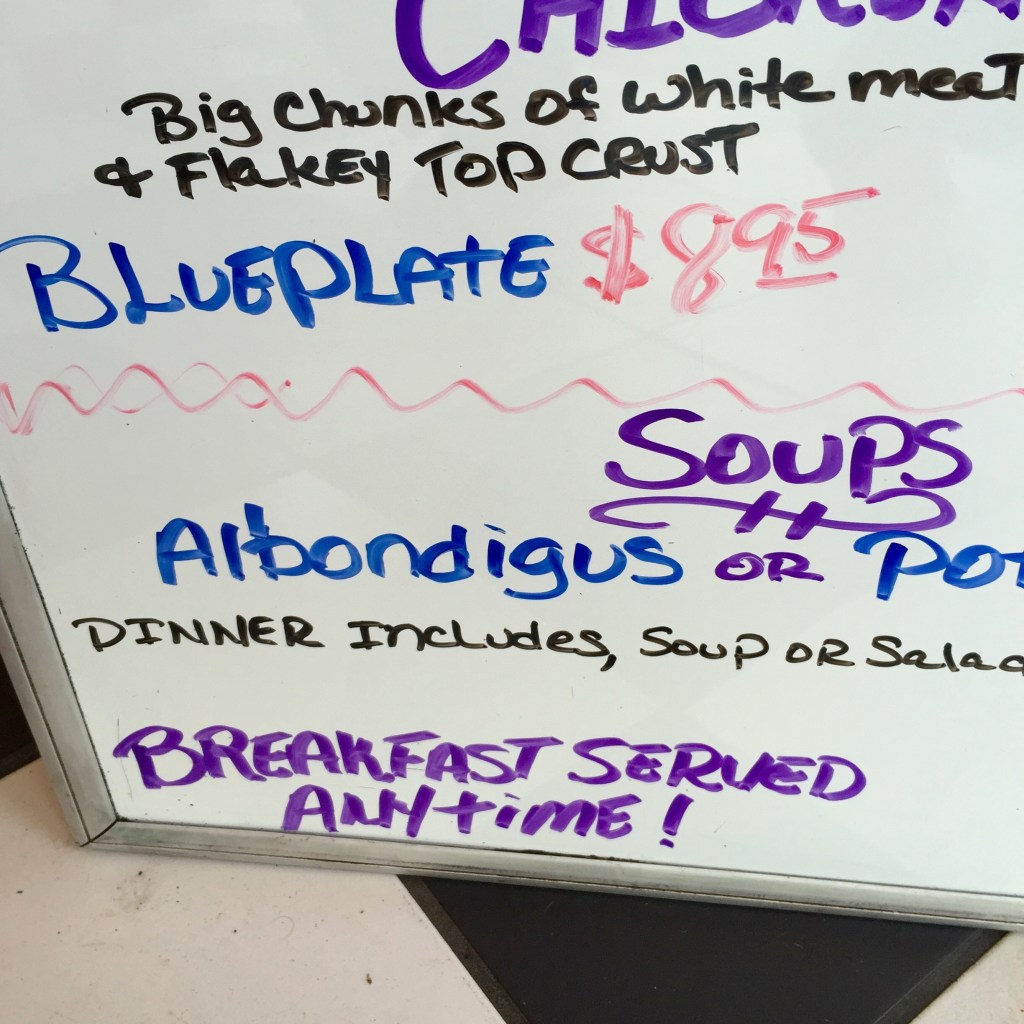 Big Chunks of white meat
& Flakey Top Crust
Blueplate $8.95
Soups
Albondigus or
Dinner Includes, Soup or Salad
Breakfast Served
Anytime!